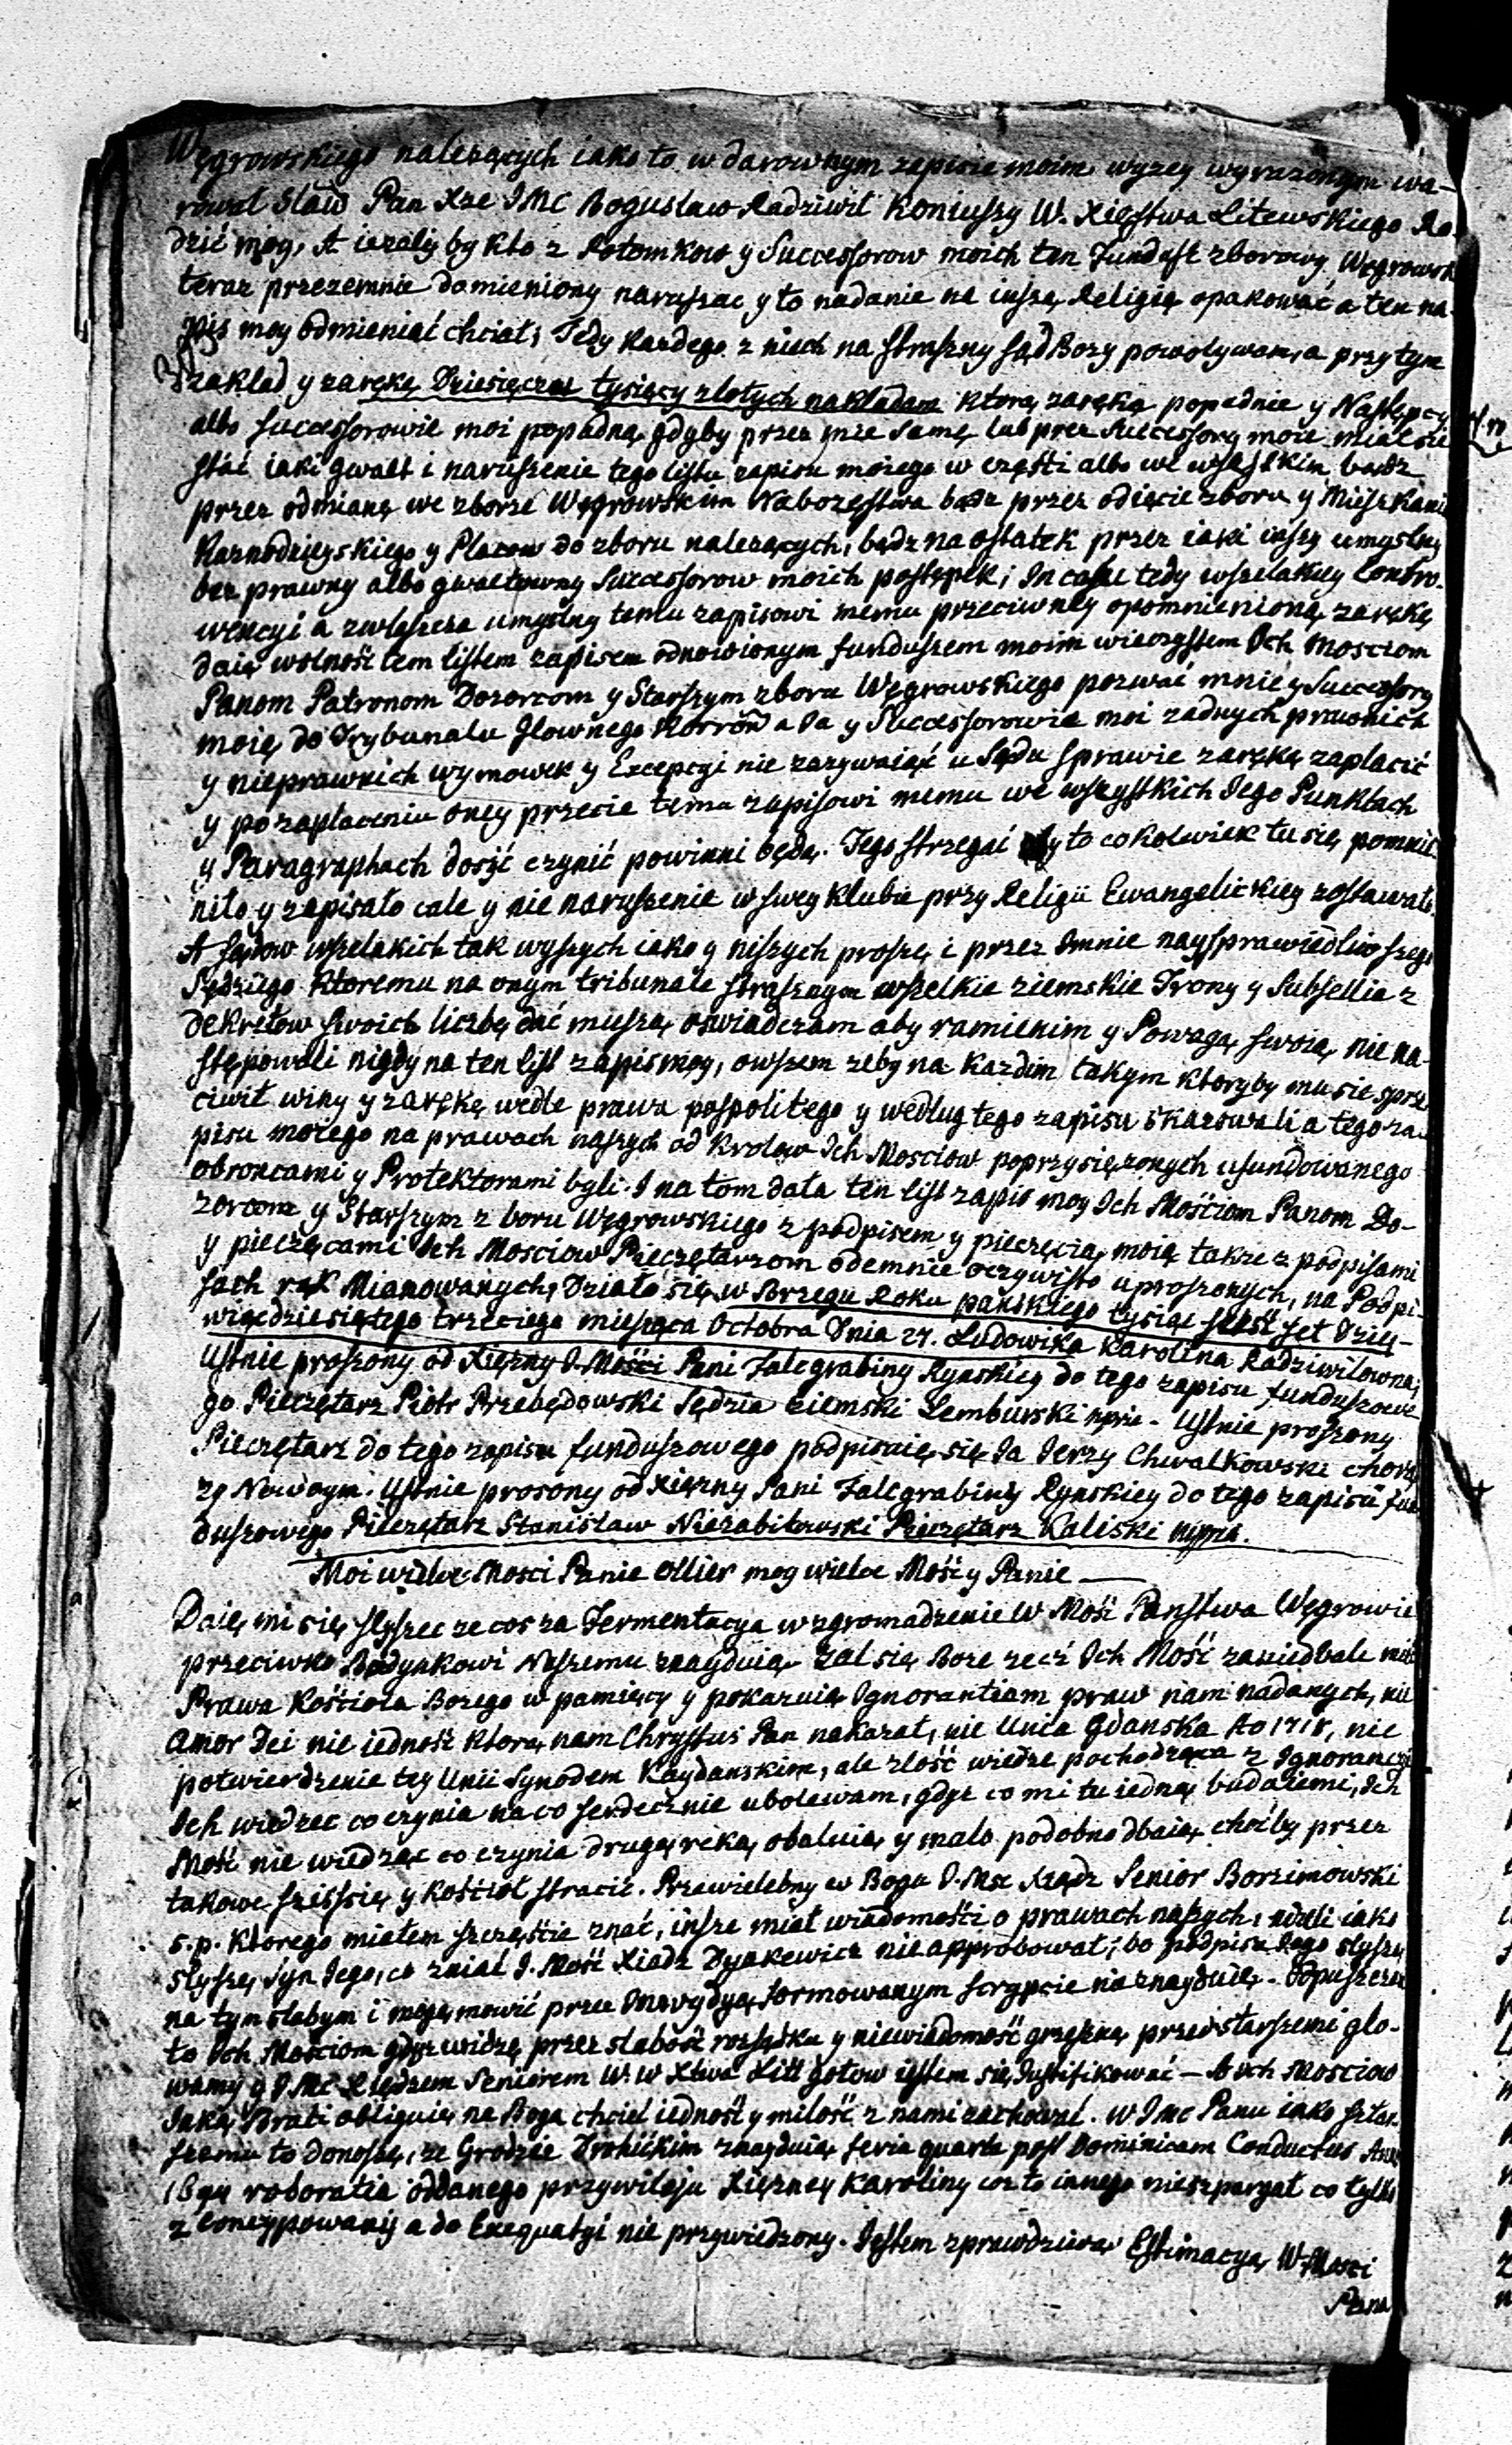 Węgrowskiego należących iako to w darownym zapisie moim wyzey wyrazonym wa-
rował Sław Pan Xże JMC Bogusław Radziwił Koniuszy W. Xięstwa Litewskiego Ro-
dzić moy, A iezeliby kto z Potomkow y Successorow moich ten Fundasz zborowy Węgrowsk
teraz przezemnie domieniony naruszac y to nadanie na inszą Religię opakować a ten na-
pis moy odmieniać chciał; Tedy kazdego z niech na straszny sąd Bozy powoływam, a przytym
zakład y zarękę Dziesięciu tysięcy złotych nakładam ktorą zarękę popadnie y Następcy
albo successorowie moi popadną gdyby przez mie samę lub prez Successory moie miał sie
stać iaki gwałt i naruszenie tego listu zapisu moiego w części albo we wszystkim, bądz
przez odmianę we zborze Węgrowskim Nabozęstwa bądz przez odięcie zboru y Mieszkani
Kaznodzieyskiego y Placow do zboru nalezących, bądz na ostatek przez iaki inszy umyslny
bez prawny albo gwałtowny Successorow moich postępek; In casu tedy wszelakiey Contro-
wencyi a zwłaszcza umyslny temu zapisowi memu przeciwney opomnienioną zarękę
daię wolność tem listem zapisem odnowionym funduszem moim wieczystem Ich Mosciom
Panom Patronom Dozorcom y Starszym zboru Węgrowskiego pozwać mnie y Successory
moię do Trybunału Głownego Korron̄ a Ja y Successorowie moi zadnych prawnich
y nieprawnich wymowek y Excepcyi nie zazywaiąć u Sądu sprawie zarękę zapłacić
y po zapłaceniu oney przecie temu zapisowi memu we wszystkich Iego Punktach
y Paragraphach dosyć czynić powinni będą. Tego strzegać y to cokolwiek tu się pomnie-
niło y zapisało cale y nie naruszenie w swey klubie przy Religii Ewangelickiey zostawało.
A sądow wszelakich tak wyszych iako y niszych proszę i przez Imnie naysprawiedliwszego
Sędziego ktoremu na onym tribunale straszyym wszelkie ziemskie Trony y Subsellia z
dekretow swoich liczbę dać muszą, oswiadczam aby ramienim y Powagą swoią nie na-
stępowali nigdy na ten list zapis moy, owszem zeby na kazdim takym ktoryby musie sprze
ciwił winy y zarękę wedle prawa pospolitego y według tego zapisu skazowali a tego za-
pisu moiego na prawach naszych od Krolow Ich Mosciow poprzysięzonych ufundowanego
obroncami y Protektorami byli. I na tom dała ten list zapis moy Ich Mościom Panom Do-
zorcom y Starszym zboru Węgrowskiego z podpisem y pieczęcią moią takze z podpisami
y pieczęcami Ich Mosciow Pieczętarzom odemnie oczywisto uproszonych, na Podpi-
sach rąk Mianowanych, Działo się w Brzegu Roku pańskiego tysiąc szesć set Dzię-
więdziesiątego trzeciego miesząca Octobra Dnia 27. Ludowika Karolina Radziwilowna;
Ustnie proszony od Xięzny J. Mości Pani Falcgrabiny Rynskiey do tego zapisu funduszowe-
go Pieczętarz Piotr Przebędowski Sędzia ziemski Lemburski mpria. Ustnie proszony
Pieczętarz do tego zapisu funduszowego podpisuię się Ja Jerzy Chwalkowski chorą
zy Nowogm. Ustnie prosony od Xięzny Pani Falcgrabiny Rynskiey do tego zapisu fun
duszowego Pieczętarz Stanisław Niezabitowski Pieczętarz Kaliski mpria.
Moi wielce Mosci Panie Ollier moy wielce Mośćy Panie
Daię mi się słyszec ze cosza Fermentacya w zgromadzenie W Mość Państwa Węgrowie
przeciwko Budynkowi Naszemu znayduię zal się Boze zeć Ich Mość zaniedbale mie
Prawa Kościoła Bozego w pamięcy y pokazuią Ignorantiam praw nam nadanych, nie
Amor Dei nie iedność ktorą nam Chrystus Pan nakazał, nie Unia Gdanska Ao 1718, nie
potwierdzenie tey Unii Synodem Kaydanskim, ale złość wiedze pochodząca z Ignorancyi
Ich wiedzec co czynia na co serdecznie ubolewam, gdyz co mi tu iedną budaiemi, Ich
Mość nie wiedząc co czynia drugą ręką obaluią y mało podobno dbaią choćby przez
takowe scissię y Kościoł stracić. Przewielebny w Bogu J. Msc Xiądz Senior Borzimowski
s. p. ktorego miałem szczęście znać, insze miał wiadomości o prawach naszych, niźeli iako
słyszę, Syn Iego, co zniał J. Mość Xiadz Dyakewicz nie approbował; bo podpisu Jego słyszę
na tym słabym i mogę mowić przez Inovydyą formowanym scrypcie nie znayduię. Odpuszczam
to Ich Mościom gdyz widzę przez słabość rozsądku y niewiadomość grzeszną przed starszemi gło-
wamy y J Mc Xiędzem Seniorem W. W Xtwa Litt gotow iestem się Justifikować — Ich Mosciow
Jaką Braci obliguię na Boga chciel iedność y miłość z nami zachował. W Jmc Panu iako sztar
szemu to donoszę, ze Grodzie Drohickim znayduię feria quarta post Dominicam Conductus Ann
169 roboratia oddanego przywileju Xięzney Karoliny coz to innego nieszpargał co tylko
z concypowany a do Exequatyi nie przywiedzony. Jestem z prawdziwą Estimacyą W Mosci
Pana